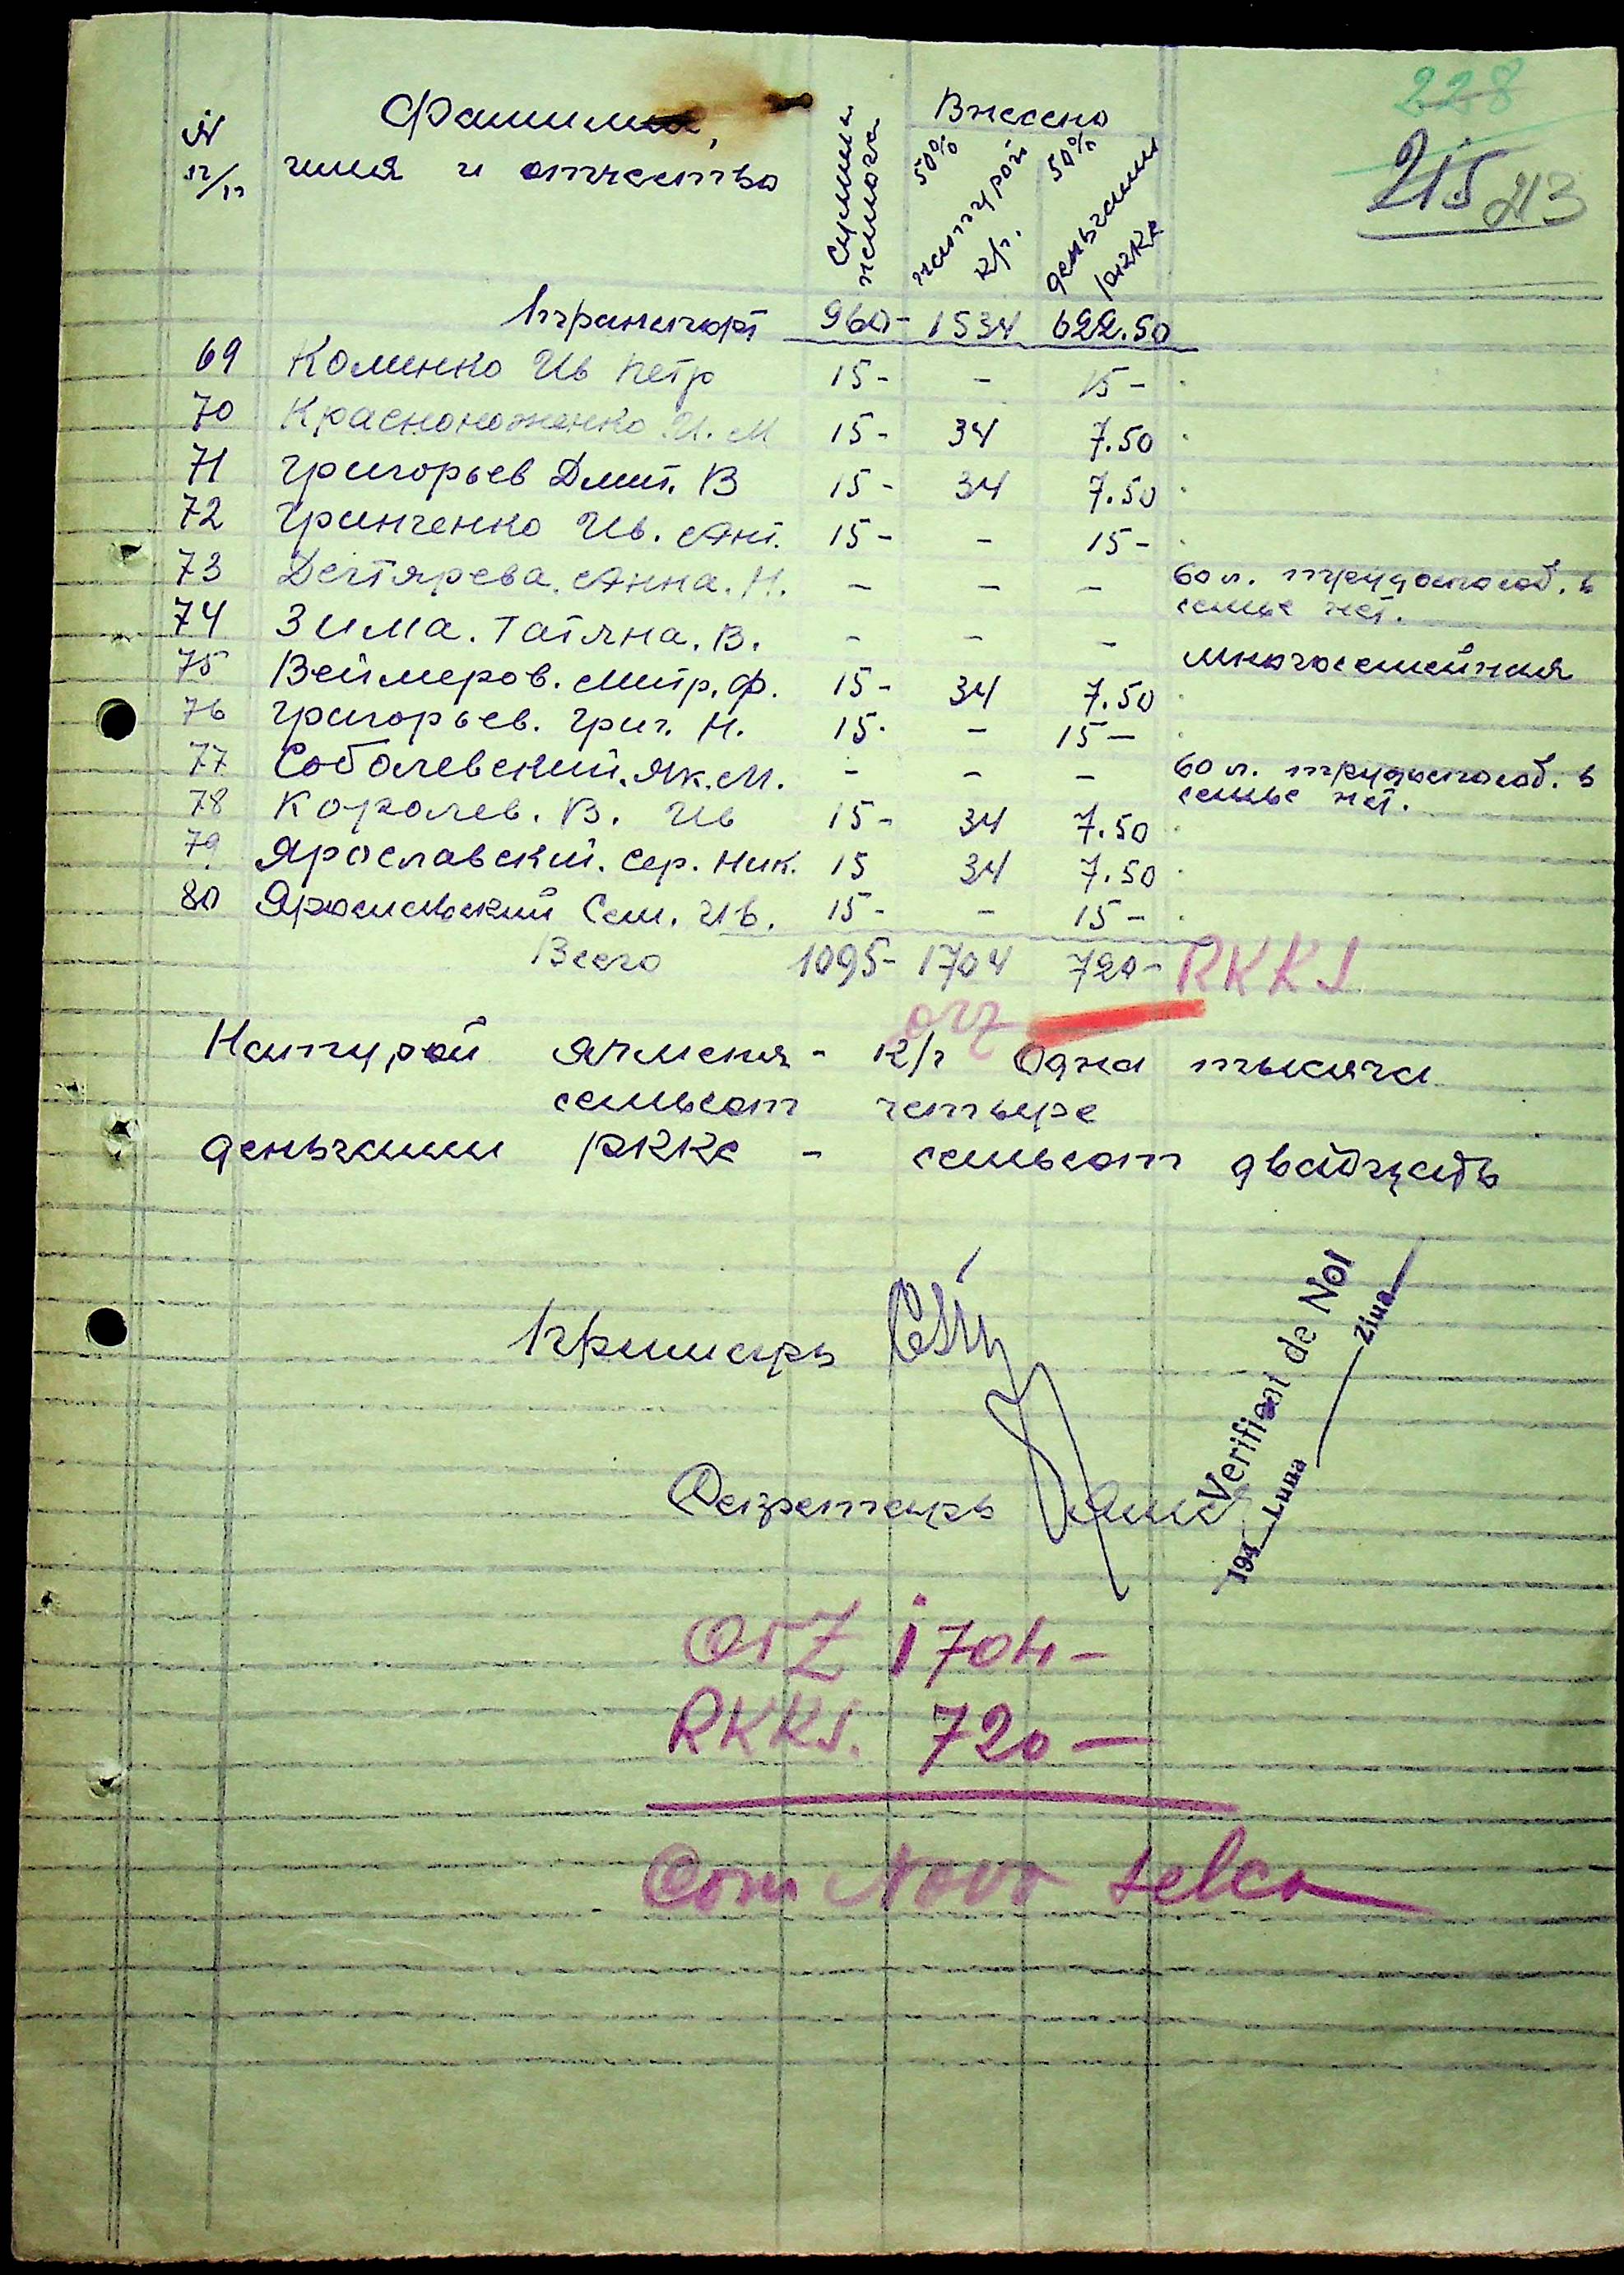 228
215 213
№ п/п Фамилия, имя и отчество Сумма налога Внесено 50% натурой к/г. 50% деньгами РККС
Транспорт 960- 1534 622.50
69 Коменко Ив Петр 15- - 15-
70 Красноноженко И. М 15- 34 7.50
71 Григорьев Дмит. В 15- 34 7.50
72 Гринченко Ив. Ант. 15- - 15-
73 Дегтярева. Анна. Н. - - - 60 л. трудоспособ. в семье нет.
74 Зима. Татяна. В. - - - многосемейная
75 Веймеров. Митр. Ф. 15- 34 7.50
76 Григорьев. Григ. Н. 15- - 15-
77 Соболевский. Як. М. - - - 60 л. трудоспособ. в семье нет.
78 Королев. В. Ив 15- 34 7.50
79 Ярославский. Сер. Ник. 15 34 7.50
80 Ярославский Сем. Ив. 15- - 15-
Всего 1095- 1704 720- RKKS
orz
Натурой ячменя - к/г Одна тысяча
семьсот четыре
деньгами РККС - семьсот двадцать
Примарь
Секретарь
Verificat de Noi
194_ Luna ___ Ziua
Orz 1704-
RKKS. 720-
Com Novo selca